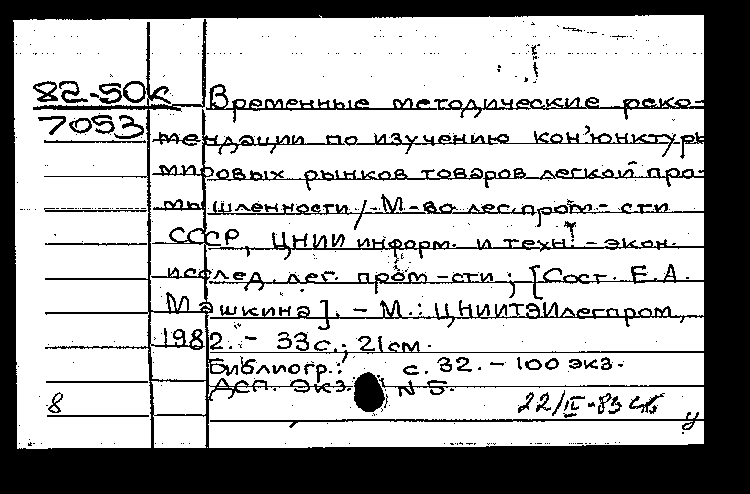 82-50к Временные методические реко-
7053 мендации по изучению кон'юнктуры
мировых рынков товаров легкой про-
мышленности / М-во лег. пром-сти
СССР, ЦНИИ информ. и техн.-экон.
исслед. лег. пром-сти; [Сост. Е.А.
Машкина]. - М.: ЦНИИТЭИлегпром,
1982. - 33 с.; 21 см.
Библиогр.: с. 32. - 100 экз.
ДСП. Экз. N 5.
8 22/II-83
У